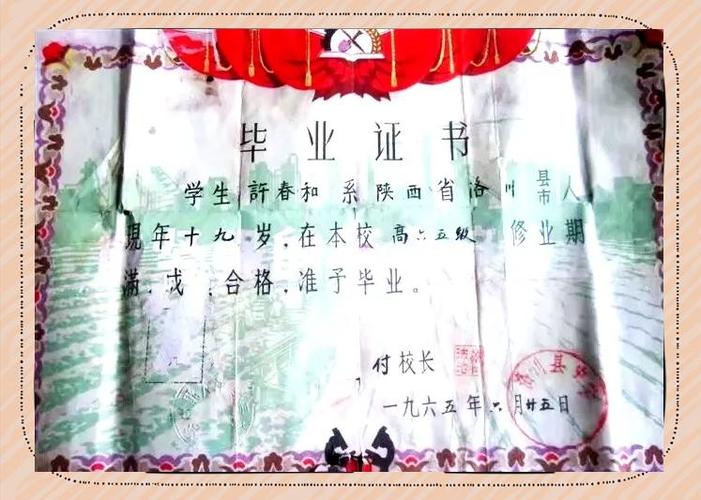 毕业证书
学生許春和系陕西省洛川县市人
現年十九岁,在本校高六五級修业期
满,成,合格,准予毕业。
付校长
一九六五年六月廿五日
洛川县